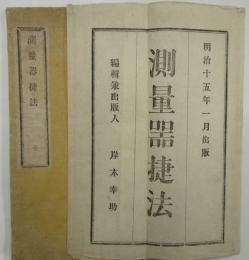 明治十五年一月出版
測量器捷法
編輯兼出版人　岸本幸助
測量器捷法　全